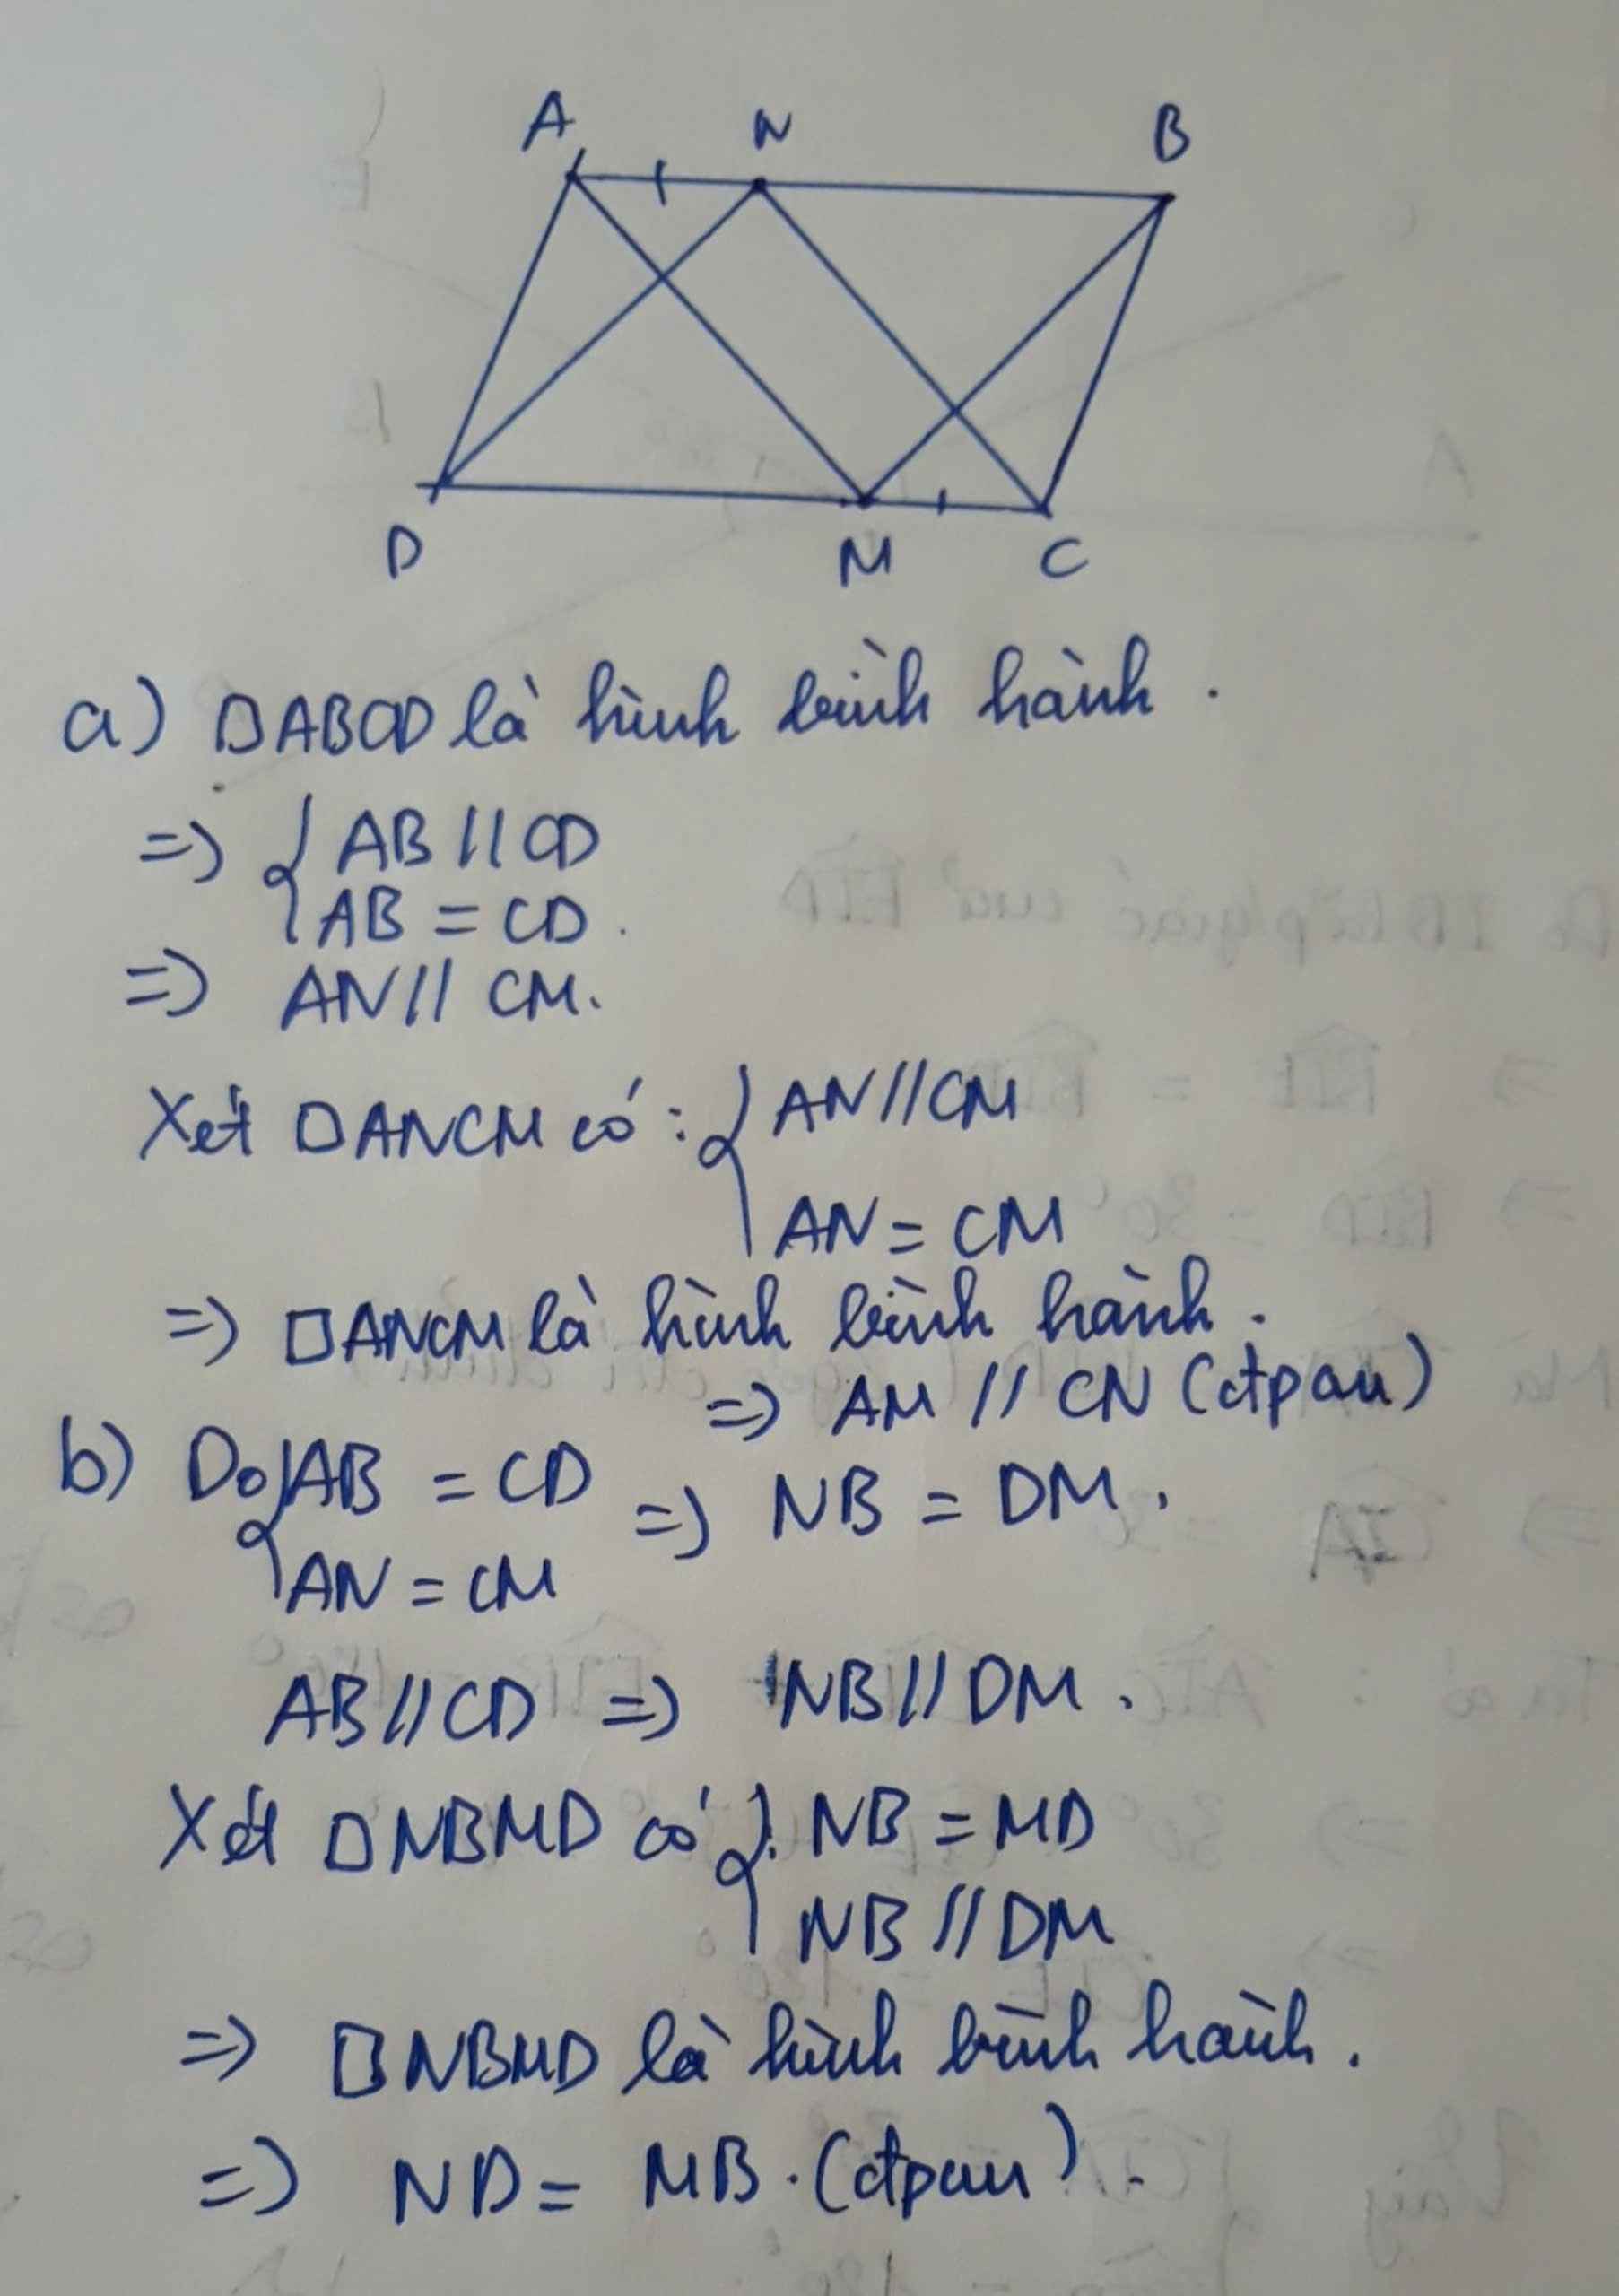 A N B
D M C
a) □ABCD là hình bình hành.
=> { AB // CD
AB = CD.
=> AN // CM.
Xét □ANCM có: { AN // CM
AN = CM
=> □ANCM là hình bình hành.
=> AM // CN (đpcm)
b) Do { AB = CD => NB = DM.
AN = CM
AB // CD => NB // DM.
Xét □NBMD có { NB = MD
NB // DM
=> □NBMD là hình bình hành.
=> ND = MB. (đpcm).